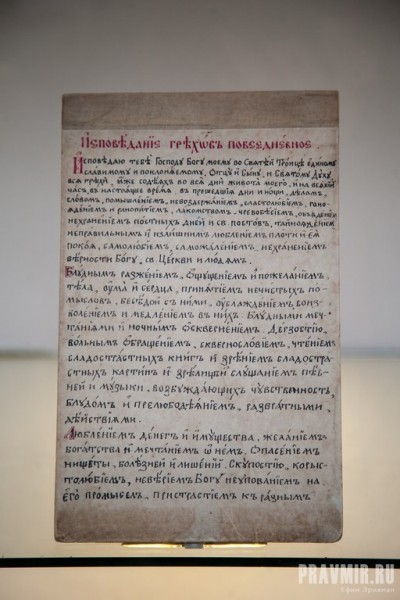 Исповѣданіе грѣховъ повседневное
Исповѣдаю тебѣ Господу Богу моему во Святѣй Троицѣ единому
славимому и покланяемому, Отцу и Сыну, и Святому Духу
вся грѣхи, яже содѣяхъ во вся дни живота моего, и на всякій
часъ, въ настоящее время, въ прошедшія дни и нощи, дѣломъ,
словомъ, помышленіемъ, невоздержаніемъ, сластолюбіемъ, рано-
яденіемъ и ранопитіемъ, лакомствомъ, чревобѣсіемъ, объяденіемъ
нехраненіемъ постныхъ дней и св. постовъ, тайнояденіемъ
неправильнымъ и излишнимъ любленіемъ плоти и ея
покоя, самолюбіемъ, саможаленіемъ, нехраненіемъ
вѣрности Богу, св. Церкви и людямъ.
Блуднымъ разженіемъ, ощущеніемъ и пожеланіемъ,
тѣла, ума и сердца, принятіемъ нечистыхъ по-
мысловъ, бесѣдой съ ними, услажденіемъ, соиз-
воленіемъ и медленіемъ въ нихъ. Блудными меч-
таніями и ночнымъ оскверненіемъ. Дерзостію
вольнымъ обращеніемъ, сквернословіемъ, чтеніемъ
сладострастныхъ книгъ и зрѣніемъ сладостра-
стныхъ картинъ и зрѣлищъ слушаніемъ пѣс-
ней и музыки, возбуждающихъ чувственность,
блудомъ и прелюбодѣяніемъ, развратными
дѣйствіями.
Любленіемъ денегъ и имущества, желаніемъ
богатства и мечтаніемъ о немъ. Опасеніемъ
нищеты, болѣзней и лишеній. Скупостію, корыс-
толюбіемъ, невѣріемъ Богу неупованіемъ на
его промыселъ. Пристрастіемъ къ разнымъ
PRAVMIR.RU